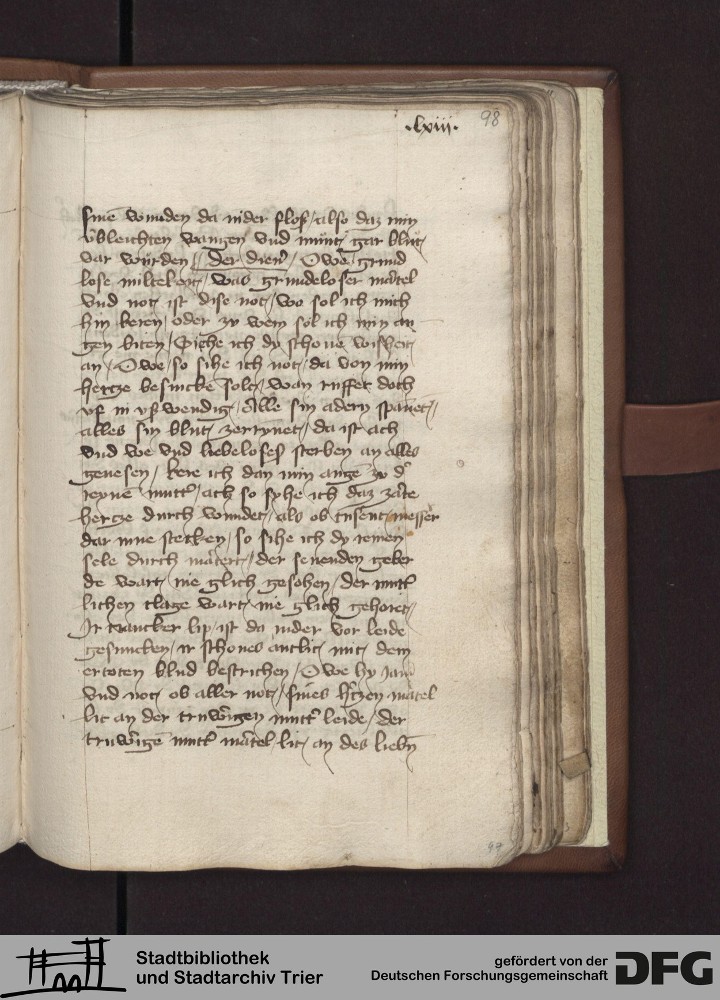 ·lxiii· 98
sine wunden da nider floß / also daz min
v̓bleichten wangen vnd munt gar blut
var wurden / der dien̓ / Owe grund
lose miltekeit / was grundeloser martel
vnd not ist dise not / wo sol ich mich
hin keren / oder zu wem sol ich min au
gen biten / Siche ich dy schone wisheit
an / Owe / so sihe ich not / da von min
hertze besincke solt / wan ruffet doch
vß in vßwendig / Alle sin adern spānet /
alles sin blut zerrynet / da ist ach
vnd we vnd liebeloses sterben an alles
genesen / kere ich dan min auge zu d̓
reynē mutt̓ / ach so syhe ich daz zarte
hertze durch wundet / als ob tusent messer
dar inne stecken / so sihe ich dy reinen
sele durch matert / der senenden geber
de wart nie glich gesehen / der mutt̓
lichen clage wart nie glich gehoret
Ir crancker lip / ist da nider vor leide
gesuncken / ir schones antlit mit dem
ertoten blud bestrichen / Owe hy iam̓
vnd not ob aller not / sines h̓tzen martel
lit an der truwrigen mutt̓ leide / der
truwrigē mutt̓ martel lit / an des liebn̄
99
Stadtbibliothek
und Stadtarchiv Trier
gefördert von der
Deutschen Forschungsgemeinschaft
DFG